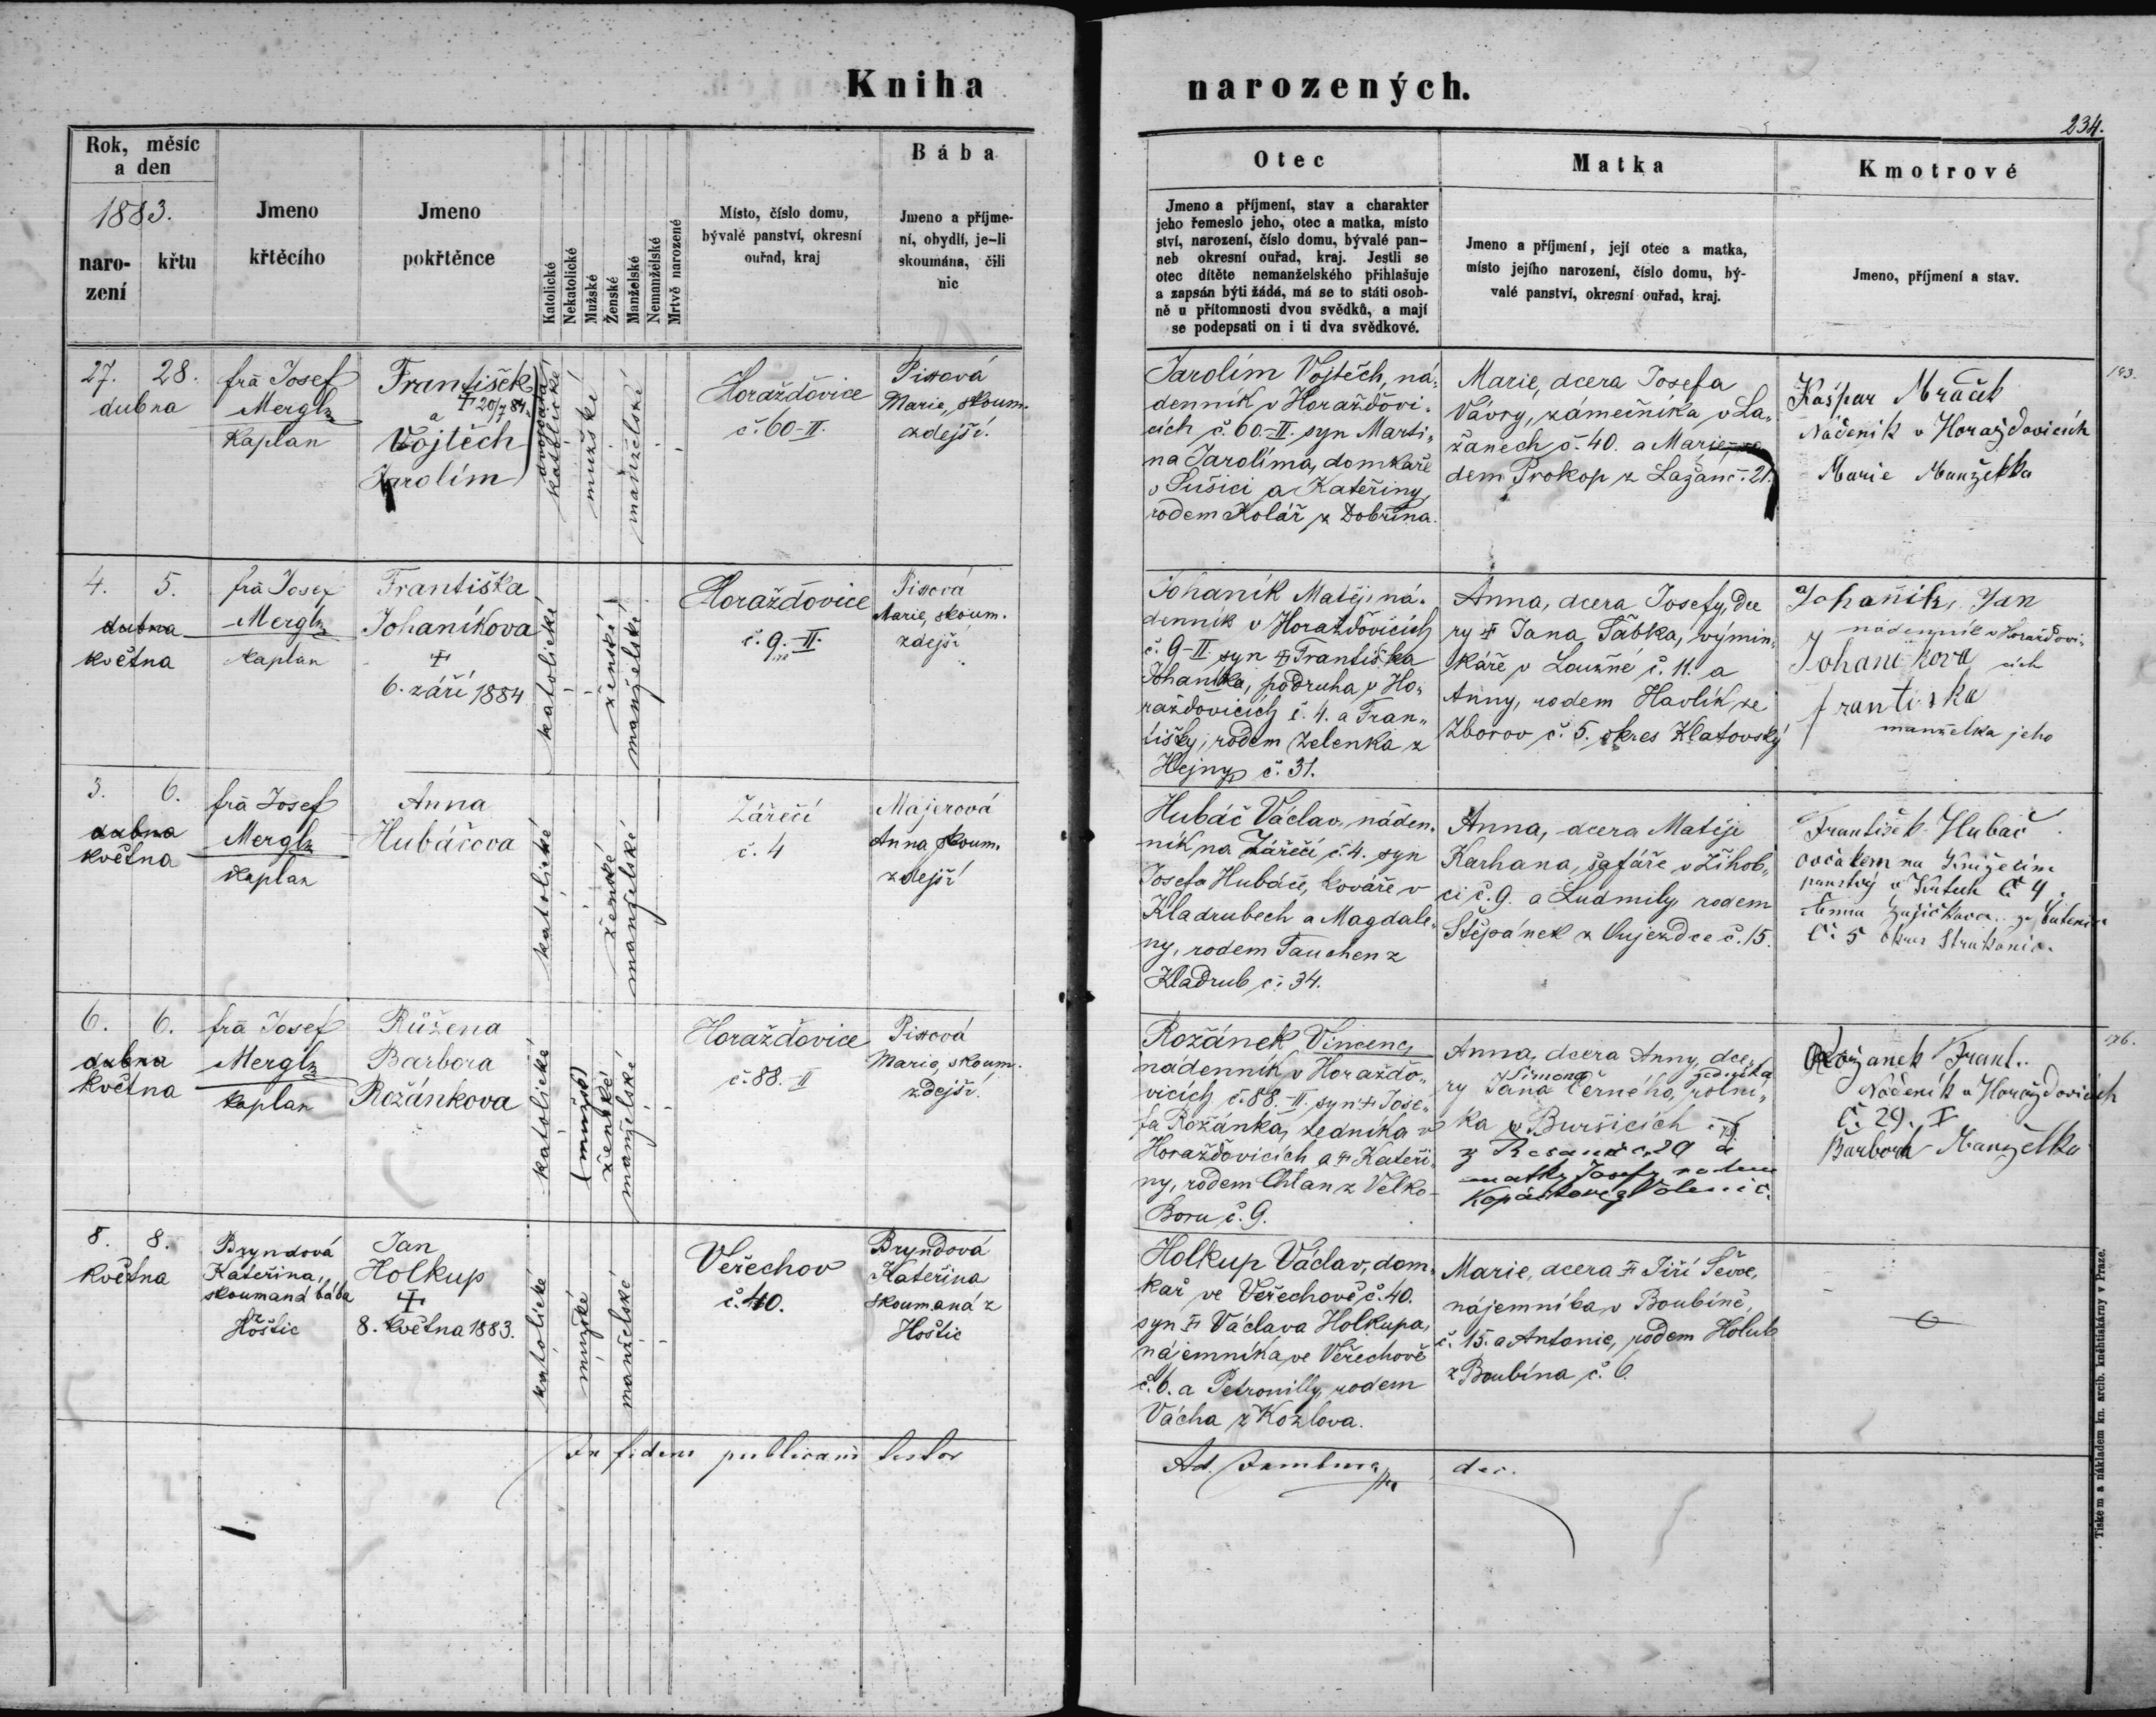 Kniha narozených.
234.
Rok, měsíc
a den
1883.
naro-
zení
křtu
Jmeno
křtěcího
Jmeno
pokřtěnce
Katolické
Nekatolické
Mužské
Ženské
Manželské
Nemanželské
Mrtvě narozené
Místo, číslo domu,
bývalé panství, okresní
ouřad, kraj
Bába
Jmeno a příjme-
ní, obydlí, je-li
skoumána, čili
nic
Otec
Jmeno a příjmení, stav a charakter
jeho řemeslo jeho, otec a matka, místo
ství, narození, číslo domu, bývalé pan-
neb okresní ouřad, kraj. Jestli se
otec dítěte nemanželského přihlašuje
a zapsán býti žádá, má se to státi osob-
ně u přítomnosti dvou svědků, a mají
se podepsati on i ti dva svědkové.
Matka
Jmeno a příjmení, její otec a matka,
místo jejího narození, číslo domu, bý-
valé panství, okresní ouřad, kraj.
Kmotrové
Jmeno, příjmení a stav.
27. 28.
dubna
frà Josef
Mergl
kaplan
František
† 20/7 84
a
Vojtěch
Jarolím
dvojčata
katolické
mužské
manželské
Horažďovice
č. 60-II.
Pissová
Marie, skoum.
zdejší.
Jarolím Vojtěch, ná-
denník v Horažďovi-
cích č. 60.-II. syn Marti-
na Jarolíma, domkaře
v Sušici a Kateřiny,
rodem Kolář z Dobršína.
Marie, dcera Josefa
Vávry, zámečníka v La-
žanech č. 40. a Marie, ro-
dem Prokop z Lažan č. 21.
Kašpar Mráček
Nádeník v Horažďovicích
Marie Manželka
193.
4. 5.
dubna
května
frà Josef
Mergl
kaplan
Františka
Johaníkova
†
6. září 1884
katolické
ženské
manželské
Horažďovice
č. 9.-II.
Pissová
Marie, skoum.
zdejší
Johaník Matěj, ná-
denník v Horažďovicích
č. 9-II. syn † Františka
Johaníka, podruha v Ho-
ražďovicích č. 4. a Fran-
tišky, rodem Zelenka z
Hejny č. 31.
Anna, dcera Josefy, dce
ry † Jana Šábka, výmin-
káře v Loužné č. 11. a
Anny, rodem Havlík ze
Zborov č. 5. okres Klatovský
Johaník, Jan
nádenník v Horažďovi-
cích
Johanikova
frantiska
manželka jeho
3. 6.
dubna
května
frà Josef
Mergl
kaplan
Anna
Hubáčova
katolické
ženské
manželské
Zářečí
č. 4
Majerová
Anna skoum.
zdejší
Hubáč Václav, náden-
ník na Zářečí č. 4. syn
Josefa Hubáče, kováře v
Kladrubech a Magdale-
ny, rodem Tauchen z
Kladrub č. 34.
Anna, dcera Matěje
Karhana, šafáře v Žihob-
ci č. 9. a Ludmily rodem
Štěpánek z Oujezdce č. 15.
František Hubač
ovčákem na
č 4.
č. 5 okres Strakonic.
6. 6.
dubna
května
frà Josef
Mergl
kaplan
Růžena
Barbora
Rožánkova
katolické
(mužské)
ženské
manželské
Horažďovice
č. 88.-II
Pissová
Marie, skoum.
zdejší.
Rožánek Vincenc,
nádenník v Horažďo-
vicích č. 88.-II. syn † Jose-
fa Rožánka, zedníka v
Horažďovicích a † Kateři-
ny, rodem Chlan z Velko-
Boru č. 9.
Anna, dcera Anny, dce-
Šimona
ry Jana Černého, rolní-
ka v Buršicích
matky Josefy rodem
Rožanek Frant.
Nádeník v Horažďovicích
č. 29. I
Barbora Manželka
196.
8. 8.
května
Bryndová
Kateřina,
skoumaná bába
z
Hoštic
Jan
Holkup
†
8. května 1883.
katolické
mužské
manželské
Veřechov
č. 40.
Bryndová
Kateřina
skoumaná z
Hoštic
Holkup Václav, dom-
kař ve Veřechově č. 40.
syn † Václava Holkupa,
nájemníka ve Veřechově
č. 6. a Petronilly, rodem
Vácha z Kozlova.
Marie, dcera † Jiří Ševce,
nájemníka v Boubíně,
č. 15. a Antonie, rodem Holub
z Boubína č. 6.
In fidem publicam testor
děk.
Tiskem a nákladem kn. arcib. kněhtiskárny v Praze.